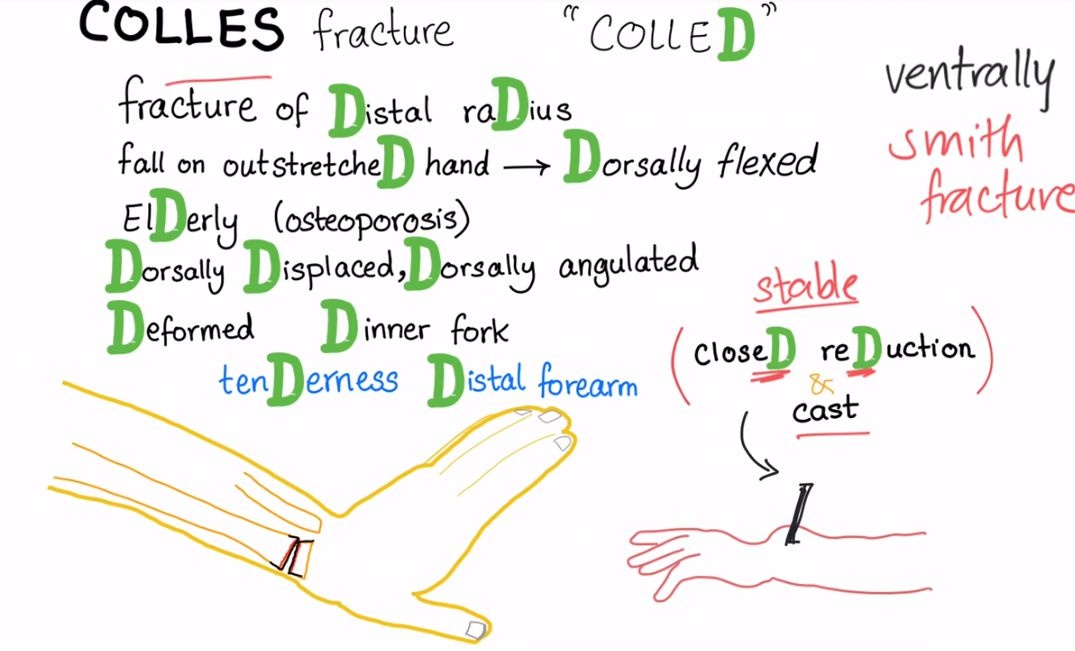 COLLES fracture "COLLED"
fracture of Distal raDius
fall on outstretcheD hand → Dorsally flexed
ElDerly (osteoporosis)
Dorsally Displaced, Dorsally angulated
Deformed Dinner fork
tenDerness Distal forearm
ventrally
smith
fracture
stable
(closeD reDuction)
&
cast